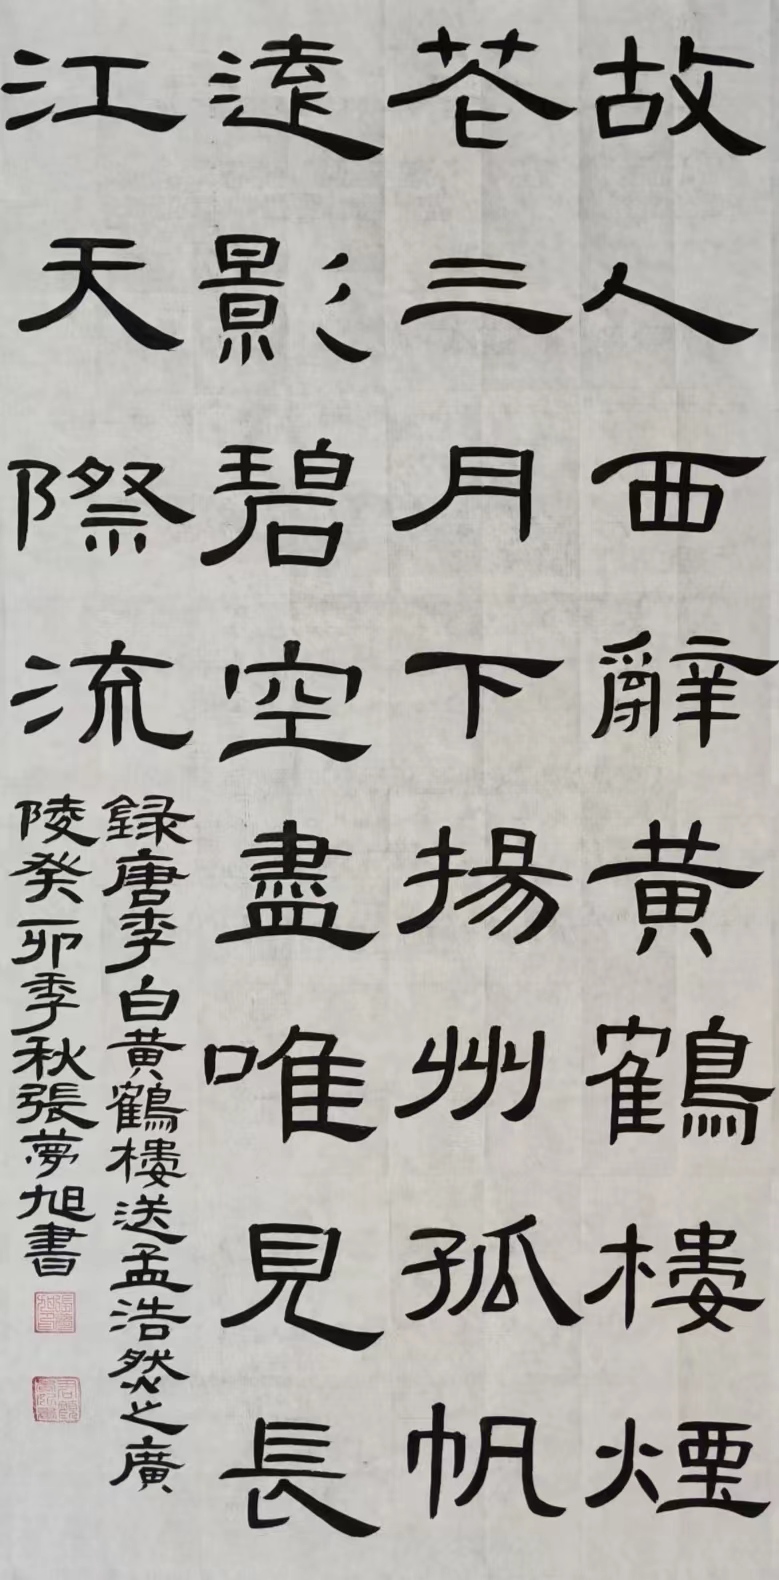 故人西辭黄鶴樓煙
花三月下揚州孤帆
遠影碧空盡唯見長
江天際流
録唐李白黄鶴樓送孟浩然之廣
陵癸卯季秋張夢旭書